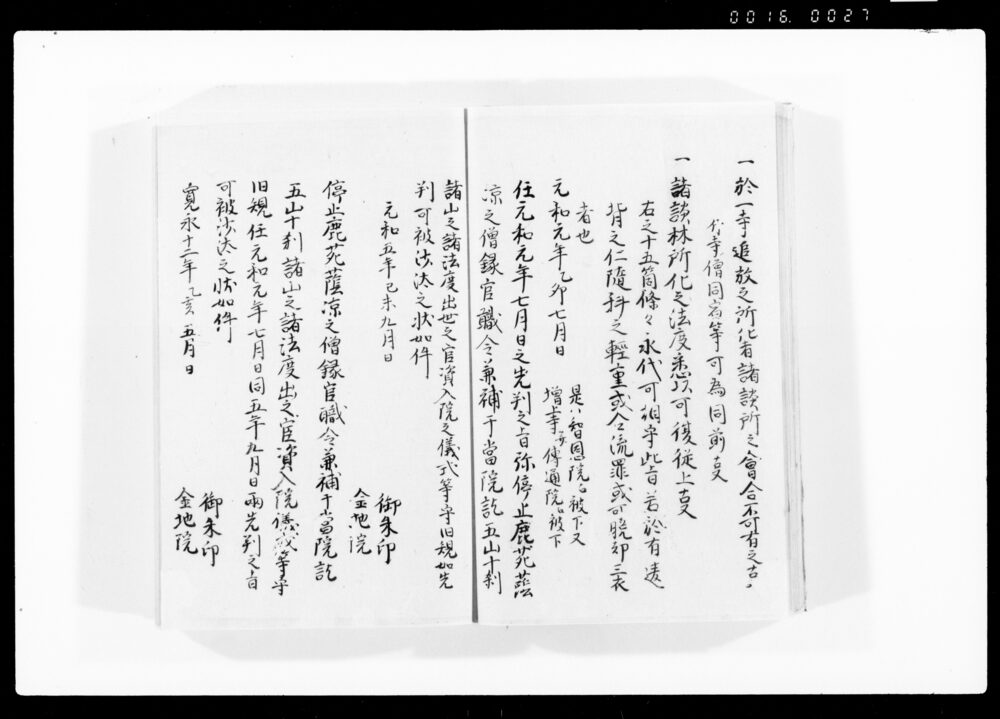 0016. 0027
一 於一寺追放之所化者諸談所之會合不可有之古
寺僧同宿等可為同前事
一 諸談林所化之法度悉以可復従上古事
右之十五箇條々永代可相守此旨若於有違
背之仁隨科之輕重或令流罪或可脱却三衣
者也
元和元年乙卯七月日
是ハ智恩院江被下又
増上寺傳通院江被下
任元和元年七月日之先判之旨弥停止鹿苑蔭
凉之僧録官職令兼補于當院訖五山十刹
諸山之諸法度出世之官資入院之儀式等守旧規如先
判可被沙汰之状如件
元和五年己未九月日
御朱印
金地院
停止鹿苑蔭凉之僧録官職令兼補于當院訖
五山十刹諸山之諸法度出之官資入院儀式等守
旧規任元和元年七月日同五年九月日両先判之旨
可被沙汰之状如件
寛永十二年乙亥五月日
御朱印
金地院